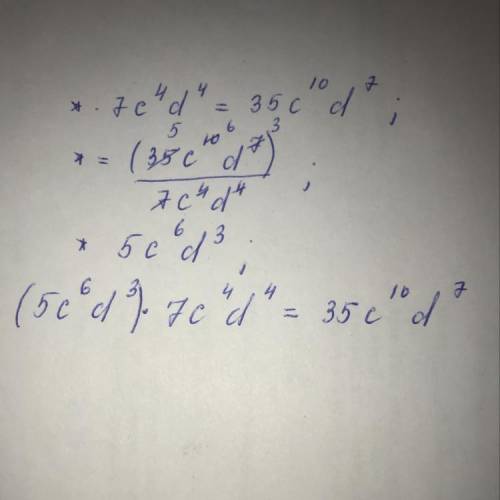 * · 7c⁴d⁴ = 35c¹⁰d⁷;
* = (35⁵c¹⁰⁶d⁷)³
7c⁴d⁴ ;
* 5c⁶d³;
(5c⁶d³) · 7c⁴d⁴ = 35c¹⁰d⁷